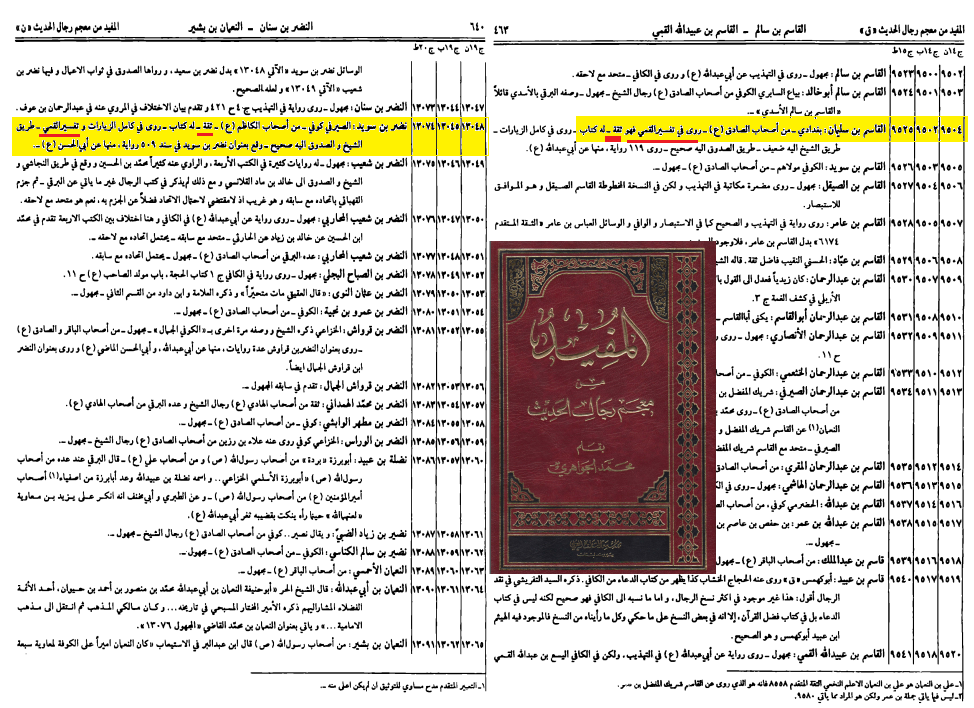 المفيد من معجم رجال الحديث «ق»
القاسم بن سالم ــ القاسم بن عبيدالله القمي
٤٦٣
ج١٤ن ج١٤ب ج١٥ط
٩٥٠٢ ٩٥٠٠ ٩٥٢٣ القاسم بن سالم: مجهول ــ روى في التهذيب عن أبي عبدالله (ع) و روى في الكافي ــ متحد مع لاحقه.
٩٥٠٣ ٩٥٠١ ٩٥٢٤ القاسم بن سالم أبوخالد: بياع السابري الكوفي من أصحاب الصادق (ع) رجال الشيخ ــ مجهول ــ وصفه البرقي بالأسدي قائلاً
«القاسم بن سالم الأسدي» ــ.
٩٥٠٤ ٩٥٠٢ ٩٥٢٥ القاسم بن سليمان: بغدادي ــ من أصحاب الصادق (ع) ــ روى في تفسيرالقمي فهو ثقة ــ له كتاب ــ روى في كامل الزيارات ــ
طريق الشيخ اليه ضعيف ــ طريق الصدوق اليه صحيح ــ روى ١١٩ رواية، منها عن أبي عبدالله (ع).
٩٥٠٥ ٩٥٠٣ ٩٥٢٦ القاسم بن سويد: الكوفي مولاهم ــ من أصحاب الصادق (ع) ــ مجهول ــ.
٩٥٠٦ ٩٥٠٤ ٩٥٢٧ القاسم بن الصيقل: مجهول ــ روى مضمرة مكاتبة في التهذيب و لكن في النسخة المخطوطة القاسم الصيقل و هو الموافق
للاستبصار.
٩٥٠٧ ٩٥٠٥ ٩٥٢٨ القاسم بن عامر: روى رواية في التهذيب و الصحيح كما في الاستبصار و الوافي و الوسائل العباس بن عامر «الثقة المتقدم
٦١٧٤» بدل القاسم بن عامر، فلاوجود
٩٥٠٨ ٩٥٠٦ ٩٥٢٩ القاسم بن عبّاد: الحسني النقيب فاضل ثقة. قاله
٩٥٠٩ ٩٥٠٧ ٩٥٣٠ القاسم بن عبدالرحمان: كان زيدياً فعدل الى القول
الأربلي في كشف الغمة ج ٣.
٩٥١٠ ٩٥٠٨ ٩٥٣١ القاسم بن عبدالرحمان أبوالقاسم: يكنى أباالقاسم ــ
٩٥١١ ٩٥٠٩ ٩٥٣٢ القاسم بن عبدالرحمان الأنصاري: مجهول ــ روى
ح ١١.
٩٥١٢ ٩٥١٠ ٩٥٣٣ القاسم بن عبدالرحمان الخثعمي: الكوفي ــ من
٩٥١٣ ٩٥١١ ٩٥٣٤ القاسم بن عبدالرحمان الصيرفي: شريك المفضل بن
من أصحاب الصادق (ع) ــ روى محمّد
النعمان(١) عن القاسم شريك المفضل و
الصيرفي ــ متحد مع القاسم شريك المفضل.
٩٥١٤ ٩٥١٢ ٩٥٣٥ القاسم بن عبدالرحمان المقري: من أصحاب الصادق
٩٥١٥ ٩٥١٣ ٩٥٣٦ القاسم بن عبدالرحمان الهاشمي: مجهول ــ روى في
٩٥١٦ ٩٥١٤ ٩٥٣٧ القاسم بن عبدالله: الحضرمي كوفي، من أصحاب
٩٥١٧ ٩٥١٥ ٩٥٣٨ القاسم بن عبدالله بن عمر: بن حفص بن عاصم بن
ــ مجهول ــ.
٩٥١٨ ٩٥١٦ ٩٥٣٩ قاسم بن عبدالملك: من أصحاب الباقر (ع) ــ مجهول
٩٥١٩ ٩٥١٧ ٩٥٤٠ قاسم بن عبيد: أبوكهمس «ق» روى عنه الحجاج الخشاب كذا يظهر من كتاب الدعاء من الكافي. ذكره السيد التفريشي في نقد
الرجال أقول: هذا غير موجود في اكثر نسخ الرجال، و اما ما نسبه الى الكافي فهو صحيح لكنه ليس في كتاب
الدعاء بل في كتاب فضل القرآن، إلا انه في بعض النسخ على ما حكي وكل ما رأيناه من النسخ فالموجود فيه الهيثم
ابن عبيد أبوكهمس و هو الصحيح.
٩٥٢٠ ٩٥١٨ ٩٥٤١ القاسم بن عبيدالله القمي: مجهول ــ روى رواية عن أبي عبدالله (ع) في التهذيب، ولكن في الكافي اليسع بن عبدالله القمي
١ــ علي بن النعمان هو علي بن النعمان الاعلم النخعي الثقة المتقدم ٨٥٥٨ فانه هو الذي روى عن القاسم شريك المفضل بن عمر.
٢ــ ليس فيما يأتي جملة بن عمر ولكن هو المراد مما يأتي ٩٥٨٠.
المفيد
من
معجم رجال الحديث
بقلم
محمد الجواهري
المفيد من معجم رجال الحديث «ن»
النضر بن سنان ــ النعمان بن بشير
٦٤٠
ج١٩ن ج١٩ب ج٢٠ط
الوسائل نضر بن سويد «الآتي ١٣٠٤٨» بدل نضر بن سعيد، و رواها الصدوق في ثواب الاعمال و فيها نضر بن
شعيب «الآتي ١٣٠٤٩» و لعله الصحيح.
١٣٠٤٧ ١٣٠٤٤ ١٣٠٧٣ النضر بن سنان: مجهول ــ روى رواية في التهذيب ج ٤ ح ٤٢١ و تقدم بيان الاختلاف في المروي عنه في عبدالرحمان بن عوف.
١٣٠٤٨ ١٣٠٤٥ ١٣٠٧٤ نضر بن سويد: الصيرفي كوفي ــ من أصحاب الكاظم (ع) ــ ثقة ــ له كتاب ــ روى في كامل الزيارات و تفسيرالقمي ــ طريق
الشيخ و الصدوق اليه صحيح ــ وقع بعنوان نضر بن سويد في سند ٥٠٩ رواية، منها عن أبي الحسن (ع) ــ.
١٣٠٤٩ ١٣٠٤٦ ١٣٠٧٥ النضر بن شعيب: مجهول ــ له روايات كثيرة في الكتب الأربعة، و الراوي عنه كثيراً محمّد بن الحسين و وقع في طريق النجاشي و
الشيخ و الصدوق الى خالد بن ماد القلانسي و مع ذلك لم يذكر في كتب الرجال غير ما يأتي عن البرقي ــ ثم جزم
القهبائي باتحاده مع سابقه و هو غريب اذ لامقتضي لاحتمال الاتحاد فضلاً عن الجزم به، نعم هو متحد مع لاحقه.
١٣٠٥٠ ١٣٠٤٧ ١٣٠٧٦ النضر بن شعيب المحاربي: مجهول ــ روى رواية عن أبي عبدالله (ع) في الكافي و هنا اختلاف بين الكتب الاربعة تقدم في محمّد
ابن الحسين عن خالد بن زياد عن الحارثي ــ متحد مع سابقه ــ يحتمل اتحاده مع لاحقه ــ.
١٣٠٥١ ١٣٠٤٨ ١٣٠٧٧ النضر بن شعيب المحاربي: عده البرقي من أصحاب الصادق (ع) ــ مجهول ــ يحتمل اتحاده مع سابقه.
١٣٠٥٢ ١٣٠٤٩ ١٣٠٧٨ النضر بن الصباح البجلي: مجهول ــ روى رواية في الكافي ج ١ كتاب الحجة، باب مولد الصاحب (ع) ح ١١.
١٣٠٥٣ ١٣٠٥٠ ١٣٠٧٩ النضر بن عثمان النوى: «قال العقيقي مات متحيراً» و ذكره العلامة و ابن داود من القسم الثاني ــ مجهول ــ.
١٣٠٥٤ ١٣٠٥١ ١٣٠٨٠ النضر بن عمرو بن نجية: كوفي من أصحاب الصادق (ع) ــ مجهول ــ.
١٣٠٥٥ ١٣٠٥٢ ١٣٠٨١ النضر بن قرواش: الخزاعي ذكره الشيخ و وصفه مرة اخرى بـ «الكوفي الجمال» ــ مجهول ــ من أصحاب الباقر و الصادق (ع)
ــ روى بعنوان النضر بن قراوش عدة روايات، منها عن أبي عبدالله، و أبي الحسن الماضي (ع) و روى بعنوان النضر
ابن قراوش الجمال ايضاً.
١٣٠٥٦ ١٣٠٥٣ ١٣٠٨٢ النضر بن قرواش الجمال: تقدم في سابقه المجهول ــ.
١٣٠٥٧ ١٣٠٥٤ ١٣٠٨٣ النضر بن محمّد الهمداني: ثقة من أصحاب الهادي (ع) رجال الشيخ و عده البرقي من أصحاب الهادي (ع).
١٣٠٥٨ ١٣٠٥٥ ١٣٠٨٤ النضر بن مطهر الوابشي: كوفي من أصحاب الصادق (ع) ــ مجهول ــ.
١٣٠٥٩ ١٣٠٥٦ ١٣٠٨٥ النضر بن الوراس: الخزاعي كوفي روى عنه علاء بن رزين من أصحاب الصادق (ع) رجال الشيخ ــ مجهول ــ.
١٣٠٦٠ ١٣٠٥٧ ١٣٠٨٦ نضلة بن عبيد: أبوبرزة «بردة» من أصحاب رسول الله (ص) و من أصحاب علي (ع) ــ قال البرقي عند عده من أصحاب
رسول الله (ص) «أبوبرزة الأسلمي الخزاعي... و اسمه نضلة بن عبيدالله وعد أبابرزة من اصفياء(١) أصحاب
أميرالمؤمنين (ع) من أصحاب رسول الله (ص) ــ و عن الطبري و أبي مخنف انه انكر على يزيد بن معاوية
«لعنهما الله» حينما رآه ينكت بقضيبه ثغر أبي عبدالله (ع).
١٣٠٦١ ١٣٠٥٨ ١٣٠٨٧ نضير بن زياد الضبيّ: و يقال نصير.. كوفي من أصحاب الصادق (ع) رجال الشيخ ــ مجهول ــ.
١٣٠٦٢ ١٣٠٥٩ ١٣٠٨٨ نضير بن سالم الكناسي: الكوفي ــ من أصحاب الصادق (ع) ــ مجهول ــ.
١٣٠٦٣ ١٣٠٦٠ ١٣٠٨٩ النعمان الأحمسي: من أصحاب الباقر (ع) ــ مجهول ــ.
١٣٠٦٤ ١٣٠٦١ ١٣٠٩٠ النعمان بن أبي عبدالله: قال الشيخ الحر «أبوحنيفة النعمان بن أبي عبدالله محمّد بن منصور بن أحمد بن حيوان، أحد الائمّة
الفضلاء المشاراليهم ذكره الأمير المختار المسبحي في تاريخه... و كان مالكي المذهب ثم انتقل الى مذهب
الامامية...» و يأتي بعنوان النعمان بن محمّد القاضي «المجهول ١٣٠٧٦».
١٣٠٦٥ ١٣٠٦٢ ١٣٠٩١ النعمان بن بشير: من أصحاب رسول الله (ص) قال ابن عبدالبر في الاستيعاب «كان النعمان اميراً على الكوفة لمعاوية سبعة
١ــ التعبير المتقدم مدح مساوي للتوثيق ان لم يكن اعلى منه ــ.